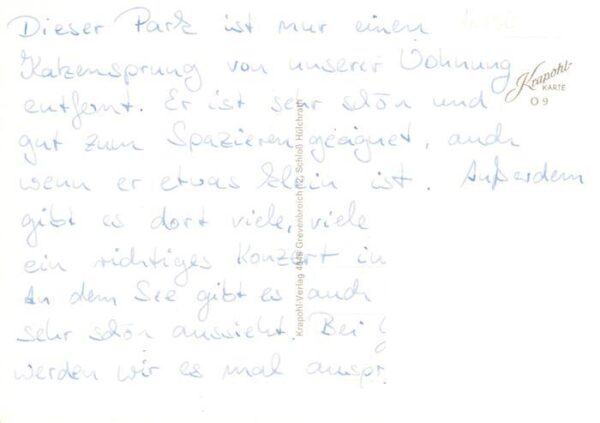 Dieser Park ist nur einen
Katzensprung von unserer Wohnung
entfernt. Er ist sehr schön und
gut zum Spazieren geeignet, auch
wenn er etwas klein ist. Außerdem
gibt es dort viele, viele
ein richtiges Konzert in
An dem See gibt es auch
sehr schön aussieht. Bei
werden wir es mal auspr
Krapohl-
KARTE
09
Krapohl-Verlag 4048 Grevenbroich 12, Schloß Hülchrath